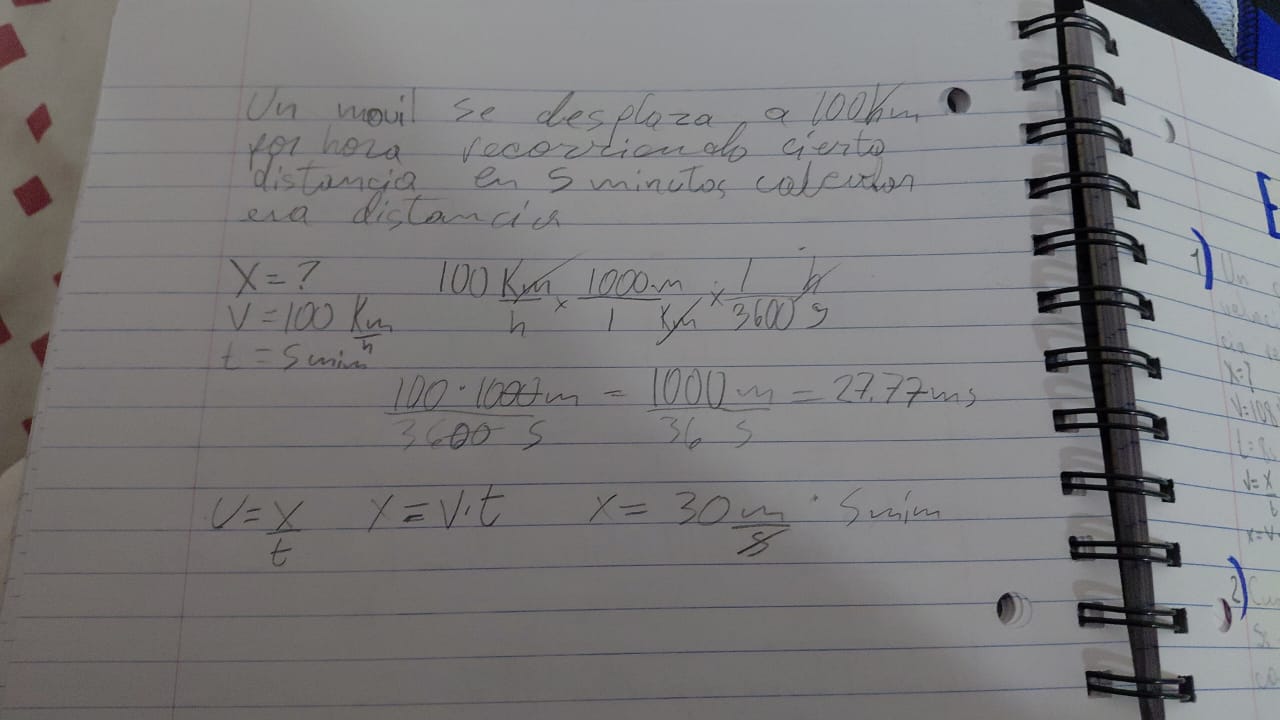 Un movil se desplaza a 100Km
por hora recorriendo cierta
distancia en 5 minutos calcular
esa distancia
X = ? 100 Km/h x 1000m/1 Km x 1 h/3600 s
V = 100 Km/h
t = 5 min
100 · 1000 m/3600 s = 1000 m/36 s = 27.77 ms
V = X/t X = V·t X = 30 m/s · 5 min
1)
Un
X=?
V=108
V=X
X=V
2)